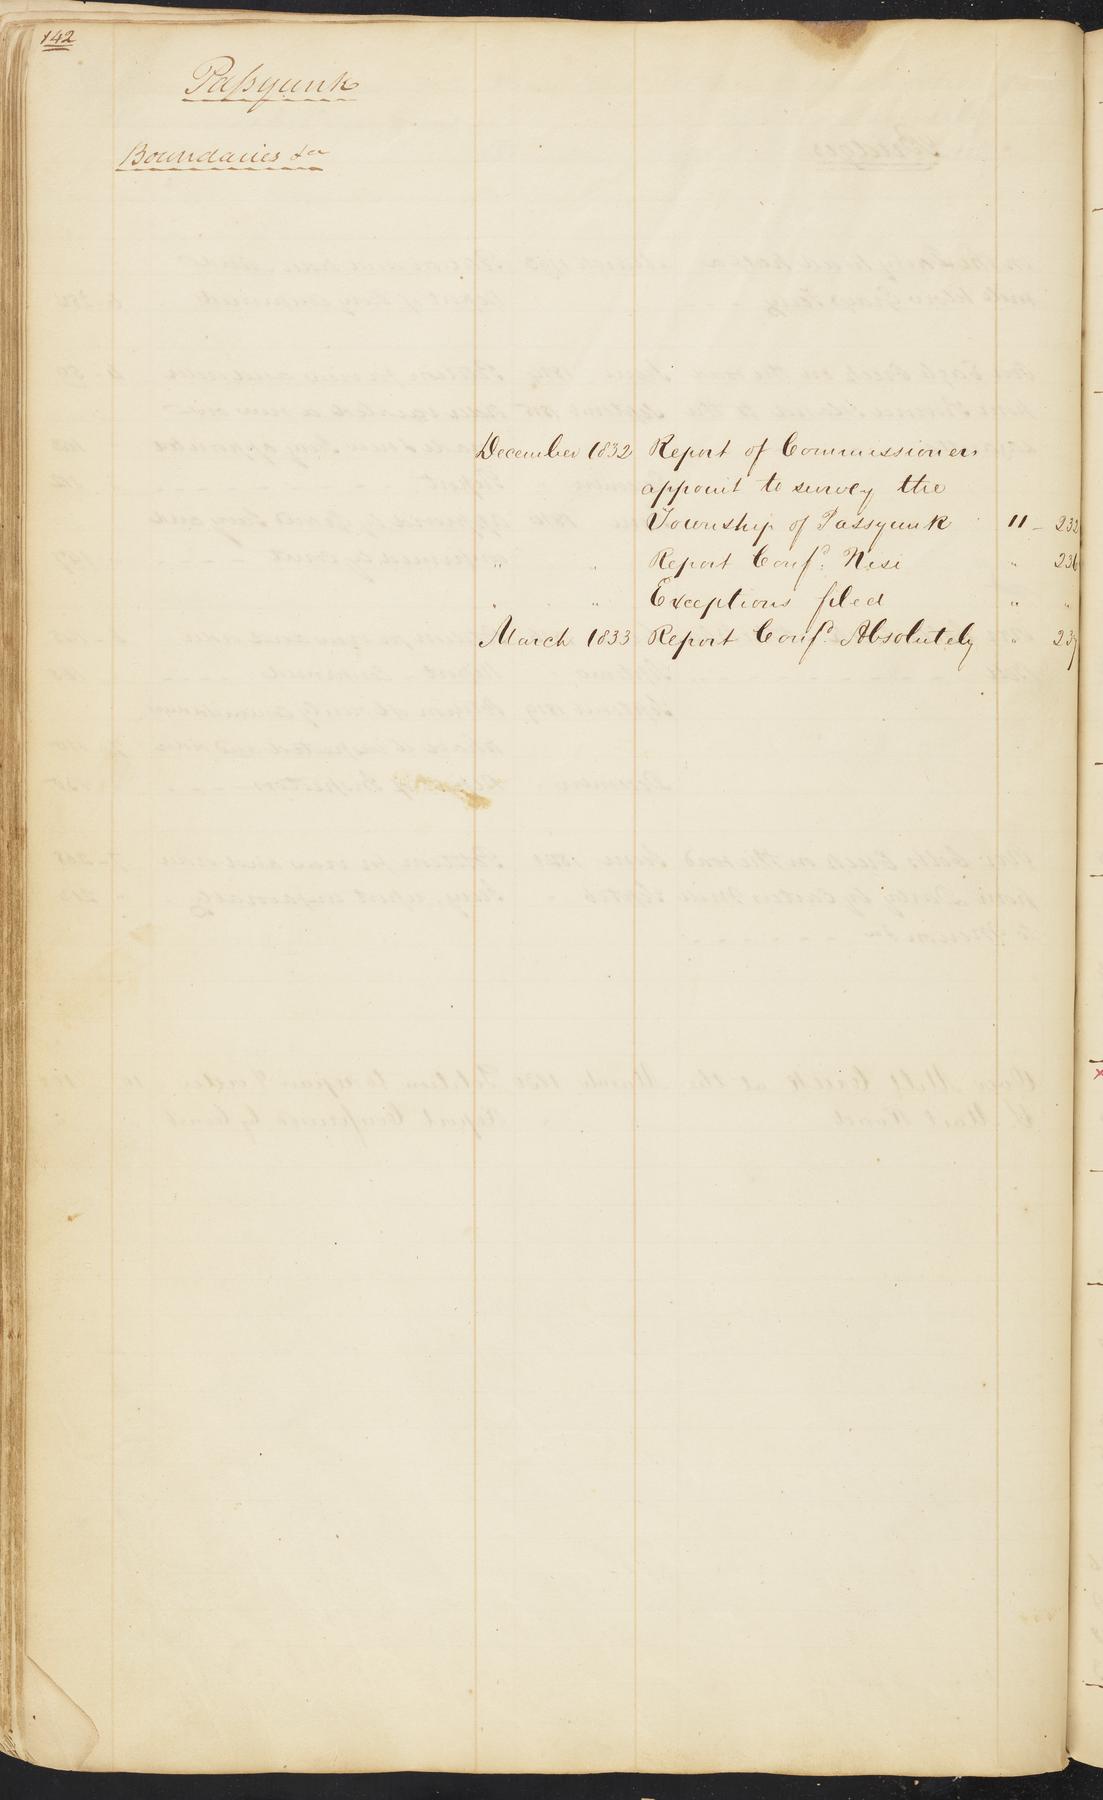 142
Passyunk
Boundaries &c
December 1832 Report of Commissioners
appoint to survey the
Township of Passyunk 11 - 232
" " Report Conf.d Nisi " 236
" " Exceptions filed " "
March 1833 Report Conf.d Absolutely " 237